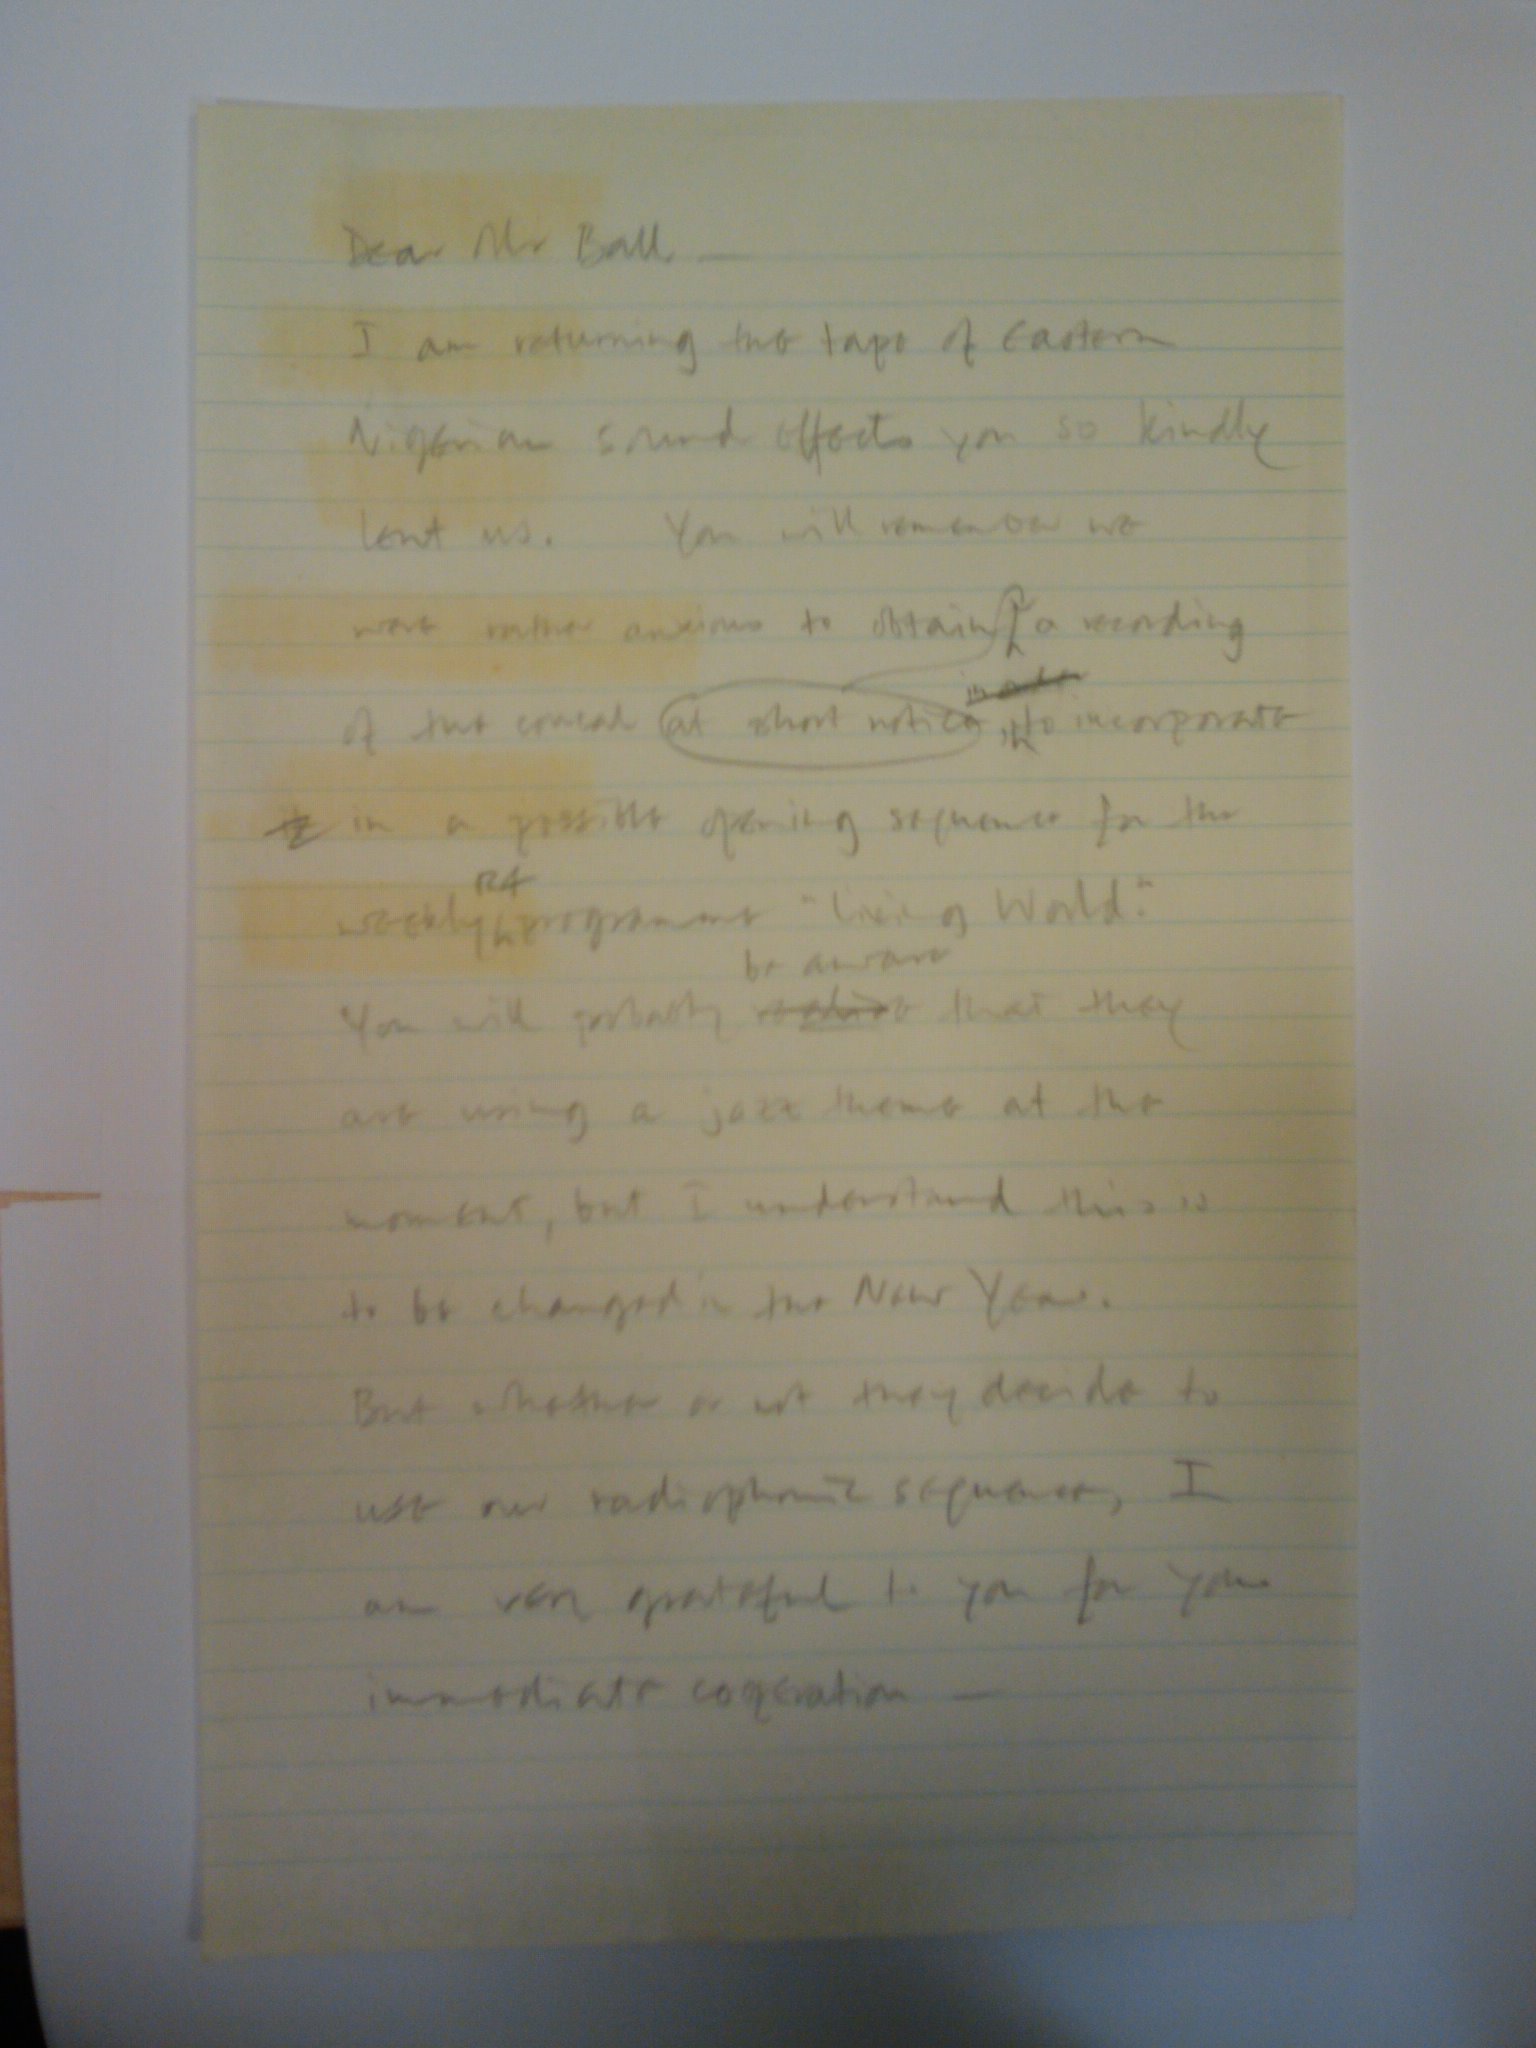 Dear Mr Ball —
I am returning the tape of Eastern
Nigerian sound effects you so kindly
lent us. You will remember we
were rather anxious to obtain a recording
of the at short notice to incorporate
in a possible opening sequence for the
weekly R4 programme "Living World."
be aware
You will probably realise that they
are using a jazz theme at the
moment, but I understand this is
to be changed in the New Year.
But whether or not they decide to
use our radiophonic sequence, I
am very grateful to you for your
immediate cooperation —